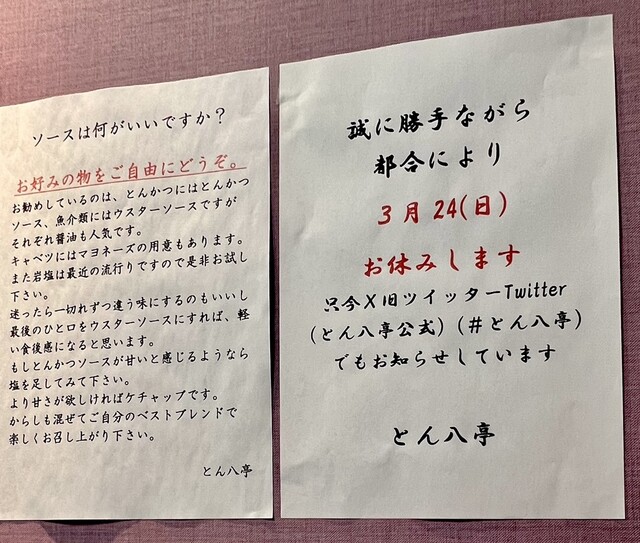 ソースは何がいいですか？
お好みの物をご自由にどうぞ。
お勧めしているのは、とんかつにはとんかつ
ソース、魚介類にはウスターソースですが
それぞれ醤油も人気です。
キャベツにはマヨネーズの用意もあります。
また岩塩は最近の流行りですので是非お試し
下さい。
迷ったら一切れずつ違う味にするのもいいし
最後のひと口をウスターソースにすれば、軽
い食後感になると思います。
もしとんかつソースが甘いと感じるようなら
塩を足してみて下さい。
より甘さが欲しければケチャップです。
からしも混ぜてご自分のベストブレンドで
楽しくお召し上がり下さい。
とん八亭
誠に勝手ながら
都合により
3月24(日)
お休みします
只今X旧ツイッターTwitter
(とん八亭公式)(#とん八亭)
でもお知らせしています
とん八亭